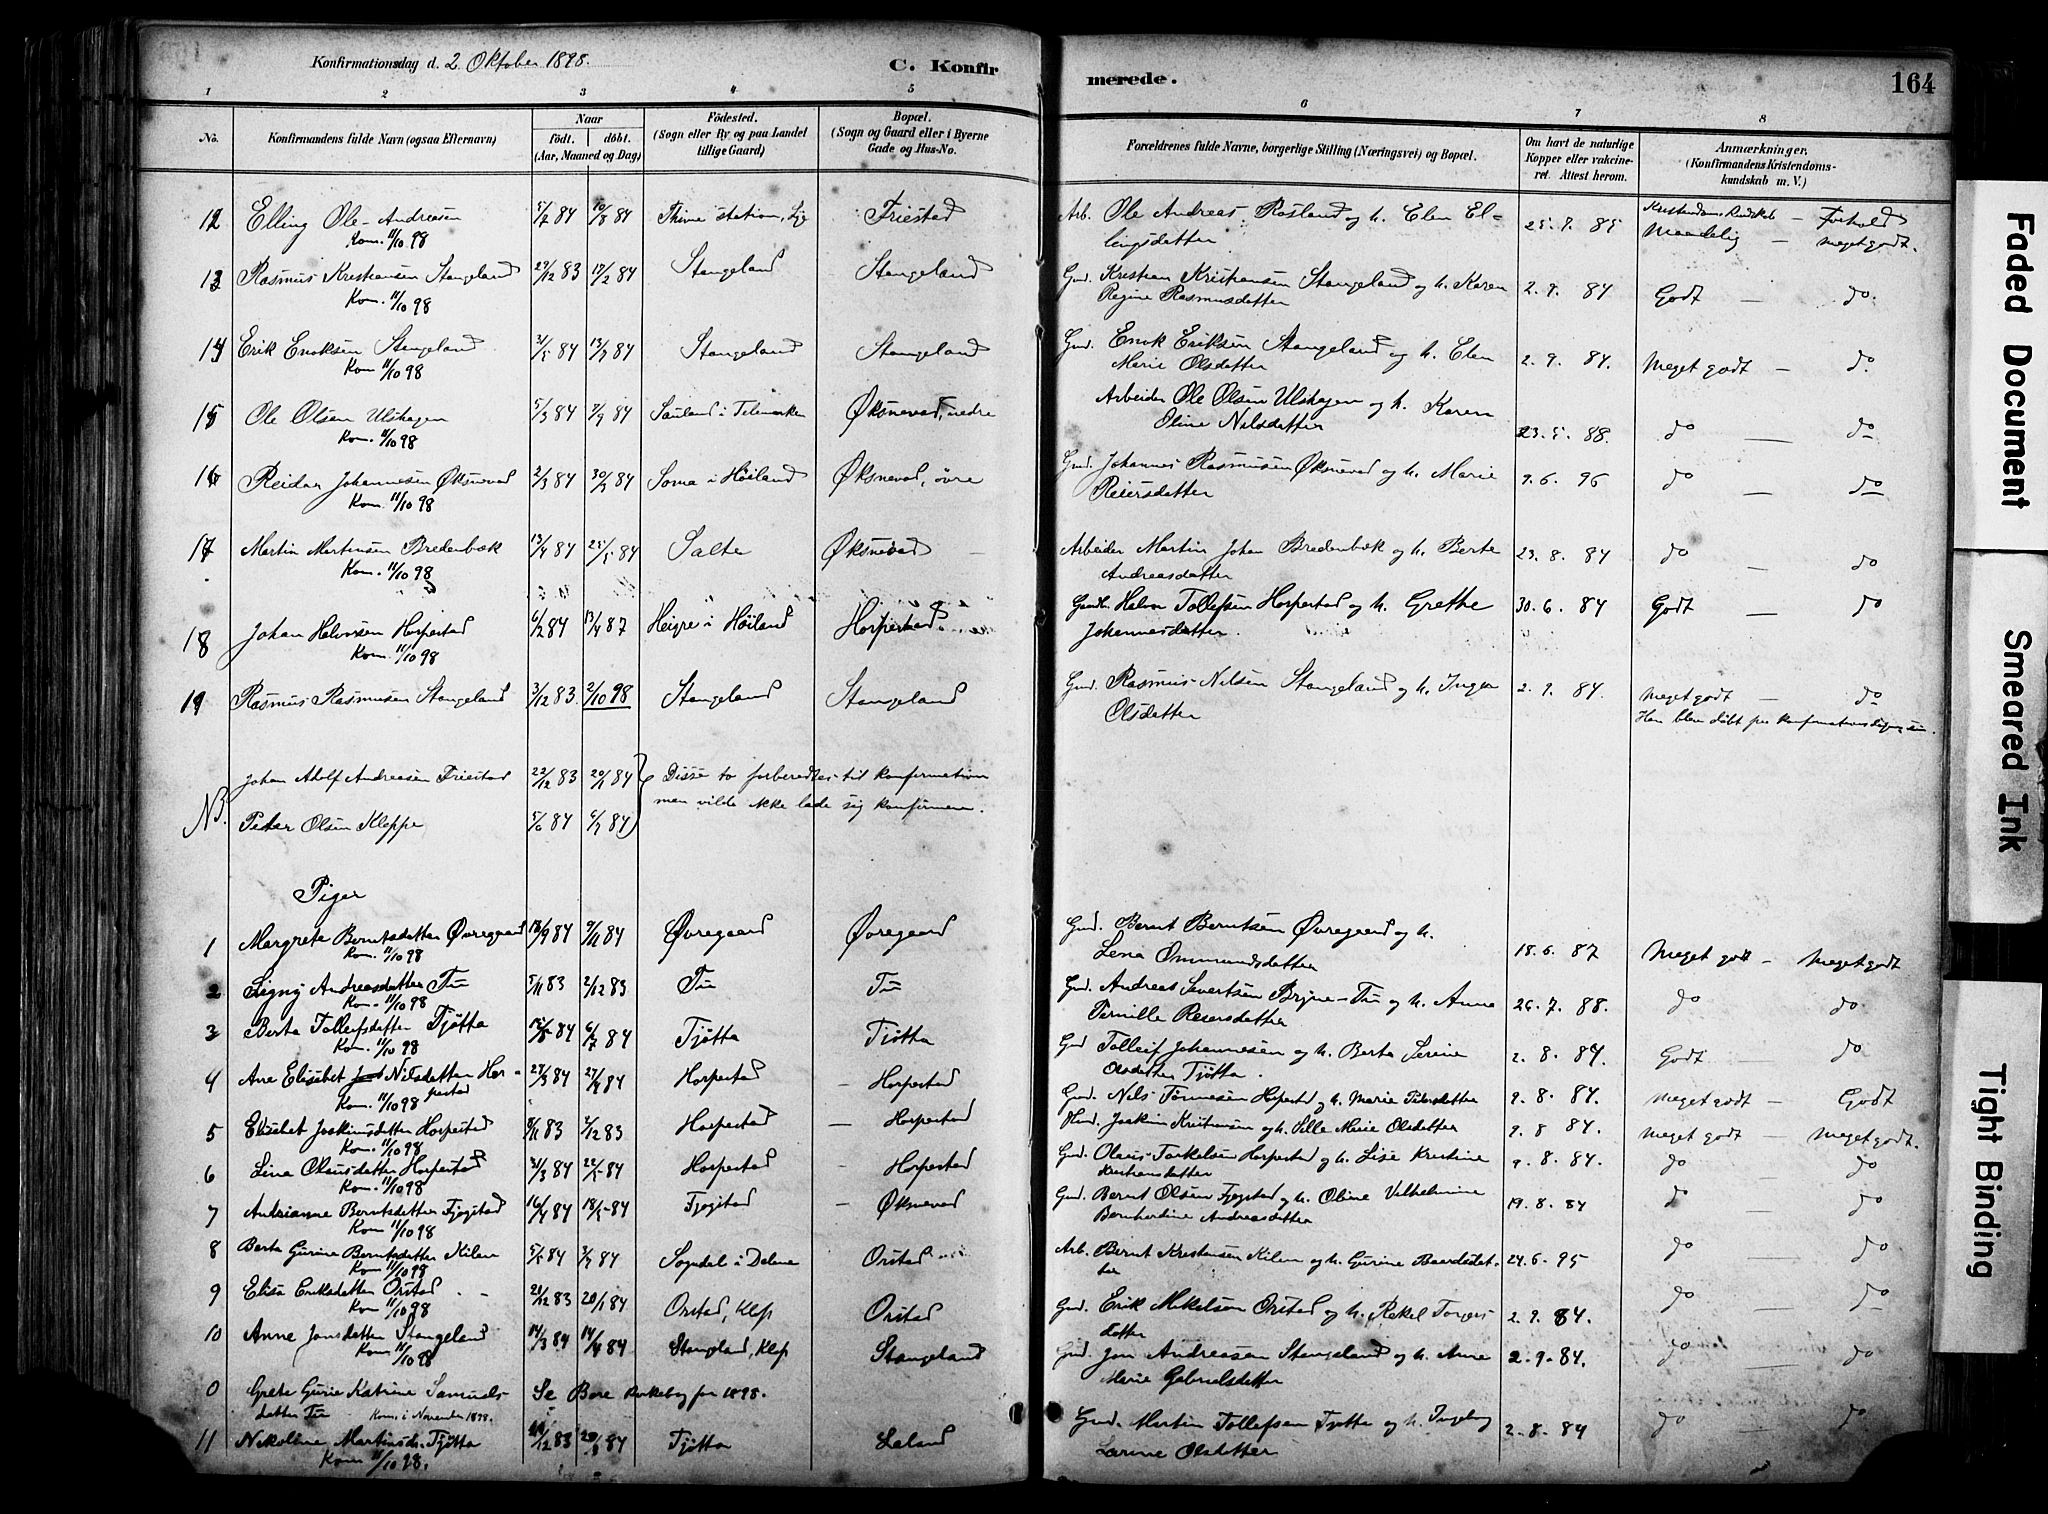 Konfirmationsdag d. 2. Oktober 1898.
C. Konfirmerede.
164
1 2 3 4 5 6 7 8
No. Konfirmandens fulde Navn (ogsaa Efternavn) Naar født. døbt. (Aar, Maaned og Dag) Fødested. (Sogn eller By og paa Landet tillige Gaard) Bopæl. (Sogn og Gaard eller i Byerne Gade og Hus-No. Forældrenes fulde Navne, borgerlige Stilling (Næringsvei) og Bopæl. Om havt de naturlige Kopper eller vakcineret. Attest herom. Anmærkninger. (Konfirmandens Kristendomskundskab m. V.)
12 Elling Ole Andreasen 5/2 84 10/3 84 Thime station, Lye Friestad Arb. Ole Andreas Rosland og h. Elen El-
lingsdatter 25. 9. 85 Maadelig — Forhold meget godt.
Kom. 11/10 98
13 Rasmus Kristiansen Stangeland 29/12 83 17/2 84 Stangeland Stangeland Gmd. Kristian Kristiansen Stangeland og h. Karen
Regine Rasmusdatter 2. 9. 84 Godt — do
Kom. 11/10 98
14 Erik Enoksen Stangeland 84 84 Stangeland Stangeland Gmd. Enok Eriksen Stangeland og h. Elen
Marie Olsdatter 2. 9. 84. Meget godt — do
Kom 11/10 98
15 Ole Olsen Ulshagen 5/3 84 84 Sauland i Telemarken Øksnevad, nedre Arbeider Ole Olsen Ulshagen og h. Karen
Oline Nilsdatter 23. 5. 88. do — do
Kom. 11/10 98
16 Reidar Johannesen Øksnevad 2/3 84 30/3 84 Soma i Høiland Øksnevad, øvre Gmd. Johannes Rasmusen Øksnevad og h. Marie
Reiersdatter 9. 6. 96 do — do
Kom. 11/10 98
17 Martin Martinsen Bredenbæk 13/4 84 25/5 84 Salte Øksnevad Arbeider Martin Johan Bredenbæk og h. Berte
Andreasdatter 23. 8. 84 do — do
Kom. 11/10 98
18 Johan Halvorsen Horpestad 6/2 84 13/4 87 Heigre i Høiland Horpestad Halvor Tollefsen Horpestad og h. Grethe
Johannesdatter. 30. 6. 84 Godt — do
Kom. 11/10 98
19 Rasmus Rasmusen Stangeland 3/12 83 2/10 98 Stangeland Stangeland Gmd. Rasmus Nilsen Stangeland og h. Inger
Olsdatter 2. 9. 84. Meget godt — do
Han blev døbt paa konfirmationsdagen
NB. Johan Adolf Andreasen Friestad 22/12 83 20/1 84 Disse to forberedtes til konfirmation
men vilde ikke lade sig konfirmere.
Peter Olsen Kleppe 5/6 84 6/7 84
Piger
1 Margrete Berntsdatter Øvregaard 18/9 84 9/11 84 Øvregaard Øvregaard Gmd. Bernt Berntsen Øvregaard og h.
Lena Ommundsdatter 18. 6. 87 Meget godt — Meget godt
Kom. 11/10 98
2 Signy Andreasdatter Tu 5/11 83 2/12 83 Tu Tu Gmd. Andreas Sivertsen Bryne-Tu og h. Anne
Pernille Reiersdatter 26. 7. 88. do do
Kom. 11/10 98
3 Berta Tolleifsdatter Tjøtta 84 6/7 84 Tjøtta Tjøtta Gmd Tolleif Johannesen og h. Berta Serine
Olsdatter Tjøtta. 2. 8. 84. Godt — do
Kom. 11/10 98
4 Ane Elisabet Nilsdatter Hor-
pestad 23/3 84 27/4 84 Horpestad — Horpestad Gmd. Nils Tønnesen Horpestad og h. Marie Pedersdatter 9. 8. 84. Meget godt — Godt
Kom. 11/10 98
5 Elisabet Joakimsdatter Horpestad 9/11 83 2/12 83 Horpestad — Horpestad Joakim Kristiansen og h. Sille Marie Olsdatter 9. 8 84. Meget godt — Meget godt.
Kom. 11/10 98
6 Lina Olausdatter Horpestad 31/3 84 22/5 84 Horpestad — Horpestad Gmd. Olaus Torkelsen Horpestad og h. Lise Kristine
Kristiansdatter 9. 8. 84. do do
Kom. 11/10 98
7 Andrianne Berntsdatter Fjogstad 16/4 84 18/5 84 Fjogstad — Øksnevad Gmd. Bernt Olsen Fjogstad og h. Oline Vilhelmine
Bernhardine Andreasdatter 19. 8. 84 do — do
Kom. 11/10 98
8 Berta Gurine Berntsdatter Kilen 84 84 Sogndal i Dalene Orstad Arb. Bernt Kristensen Kilen og h. Gurine Baardsdat-
ter 24. 6. 95 do — do
Kom. 11/10 98
9 Elisa Eriksdatter Orstad 21/12 83 20/1 84 Orstad, Klep Orstad Gmd. Erik Mikelsen Orstad og h. Rakel Torgers-
datter 2. 9. 84. do — do
Kom. 11/10 98
10 Anne Jonsdatter Stangeland 14/3 84 14/4 84 Stangeland, Klep Stangeland Gmd. Jon Andreasen Stangeland og h. Anne
Marie Gabrielsdatter 2. 9. 84. do do
Kom 11/10 98
0 Grete Gurie Katrine Samuels-
datter Tu Kom. i November 1898. Se Bore kirkebog for 1898.
11 Nikoline Martinsd. Tjøtta 12 83 84 Tjøtta Laland Gmd. Martin Tollefsen Tjøtta og h. Ingeborg
Larine Olsdatter 2. 8. 84 do do
Kom 11/10 98.
Faded Document
Smeared Ink
Tight Binding